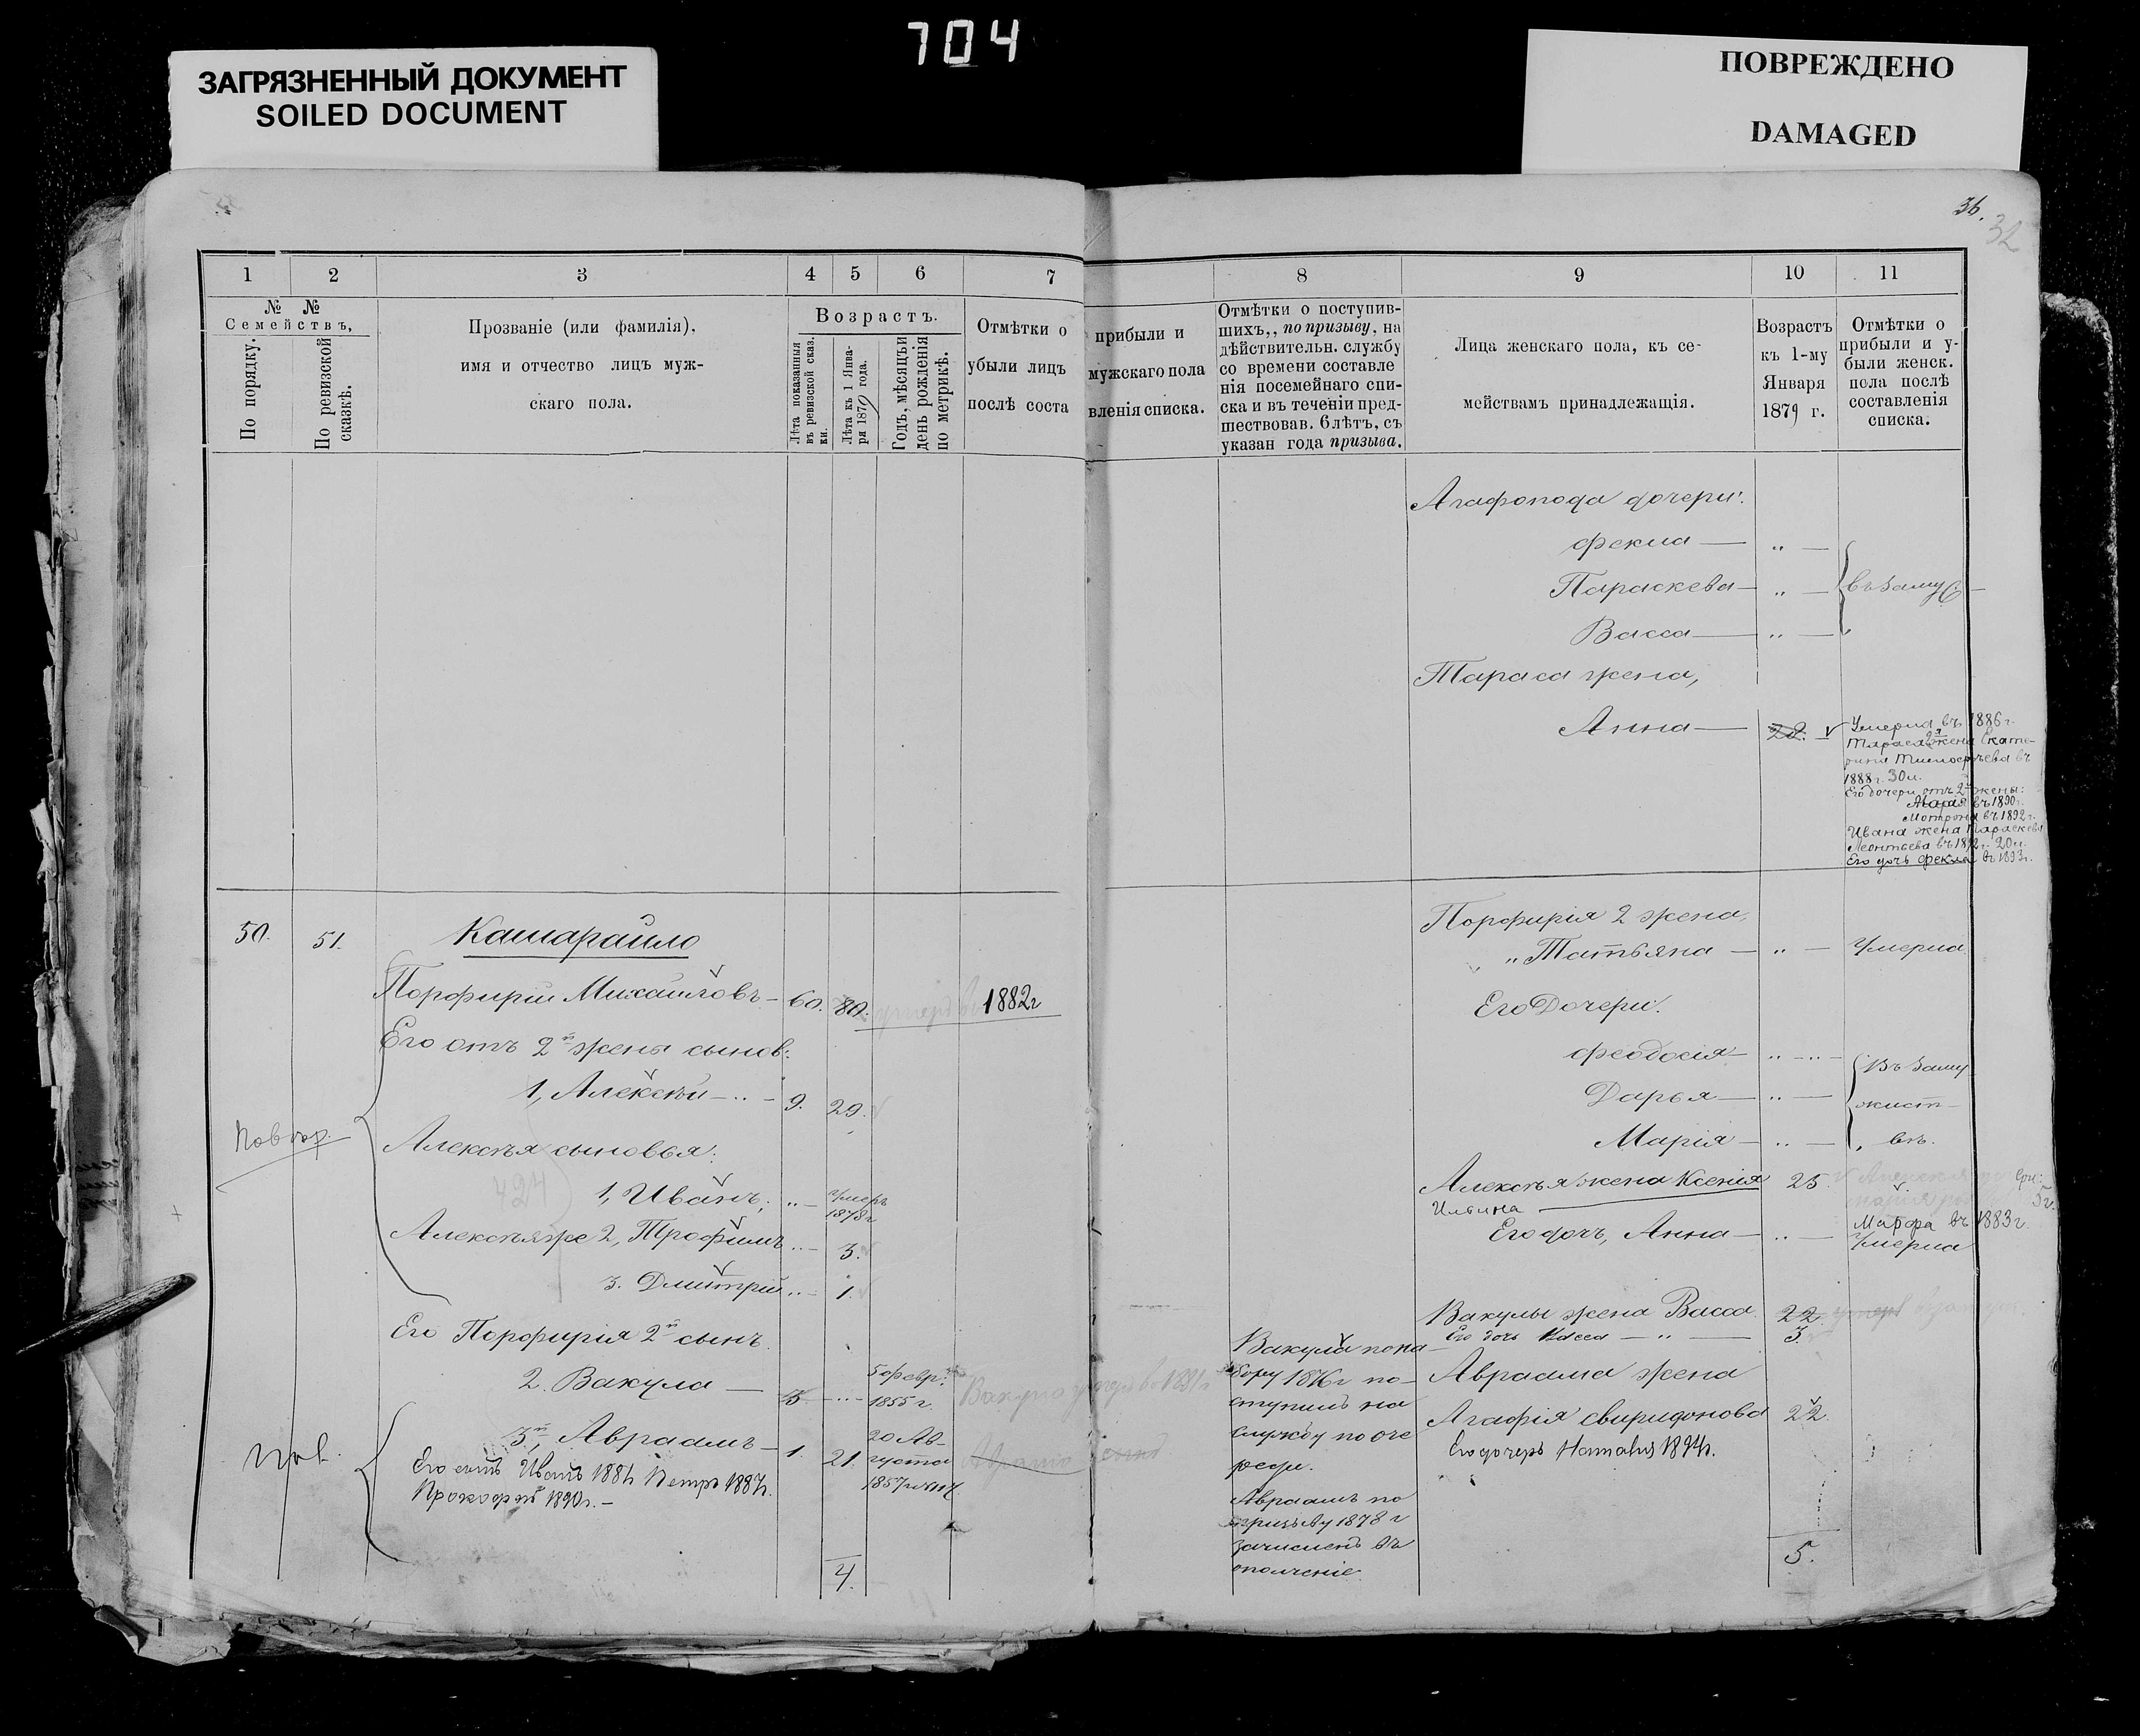 704
ЗАГРЯЗНЕННЫЙ ДОКУМЕНТ
SOILED DOCUMENT
ПОВРЕЖДЕНО
DAMAGED
36.
32
1 2 3 4 5 6 7
№ №
Семействъ,
По порядку.
По ревизской сказкѣ.
Прозваніе (или фамилія),
имя и отчество лицъ муж-
скаго пола.
Возрастъ.
Лѣта показанныя
въ ревизской сказ.
ки.
Лѣта къ 1 Янва-
ря 1879 года.
Годъ, мѣсяцъи
день рожденія
по метрикѣ.
Отмѣтки о
убыли лицъ
послѣ соста
прибыли и
мужскаго пола
вленія списка.
8 9 10 11
Отмѣтки о поступив-
шихъ,, по призыву, на
дѣйствительн. службу
со времени составле
нія посемейнаго спи-
ска и въ теченіи пред-
шествовав. 6 лѣтъ, съ
указан года призыва.
Лица женскаго пола, къ се-
мействамъ принадлежащія.
Возрастъ
къ 1-му
Января
1879 г.
Отмѣтки о
прибыли и у-
были женск.
пола послѣ
составленія
списка.
Агафопода дочери:
Фекла — „ —
Параскева — „ —
въ замуж
Васса — „ —
Тараса жена,
Анна — 28.
Умерла въ 1886 г.
Тараса 2я жена Екате-
рина Тимофѣева въ
1888 г. 30 л.
Его дочери отъ 2й жены:
въ 1890 г.
Мотрона въ 1892 г.
Ивана жена Параскева
Леонтьева въ 1892 г. 20 л.
Его дочь Фекла въ 1893 г.
50. 51.
Кашараило
Порфирій Михаиловъ — 60. 80. 1882 г
Его отъ 2й жены сынов:
1, Алексѣй — „ — 9. 29.
Повтор.
Алексѣя сыновья:
424
1, Иванъ; „ — умеръ
1878 г
Алексѣя же 2, Трофимъ „ — 3.
3. Дмитрій „ — 1.
Его Порфирія 2й сынъ
2. Вакула — 3 — „ —
5 февр:
1855 г.
Вакула умеръ въ 1891 г
3й, Авраамъ — 1. 21.
20 Ав-
густа
1857 г.
пов.
Его сынъ Иванъ 1884 Петръ 1887 г.
Прокофій 1890 г. —
4.
Порфирія 2 жена,
„ Татьяна — „ — Умерла
Его Дочери:
Феодосія — „ — „ —
Дарья — „ —
Марія — „ —
Въ заму
жист
въ.
Алексѣя жена Ксенія 25
Ильина
Марфа въ 1883 г.
Его дочь, Анна — „ — Умерла
Вакулы жена Васса 22.
Его дочь Васса — „ — 3.
Авраама жена
Агафія свиридонова 22.
Его дочерь 1894 г.
Вакула по на
бору 1876 г по-
ступилъ на
службу по оче
реди.
Авраамъ по
призыву 1878 г
зачисленъ въ
ополченіе
5.